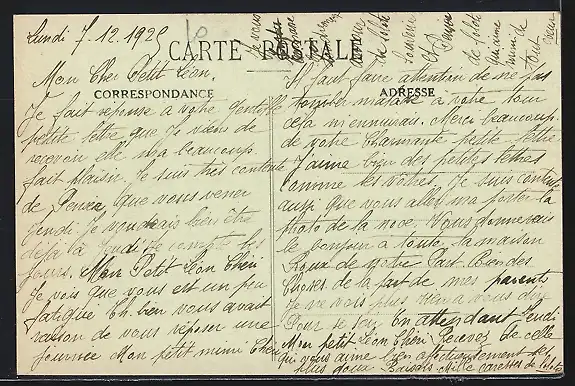 Lundi 7.12.1925
CARTE POSTALE
CORRESPONDANCE
ADRESSE
Mon Cher Petit Léon.
Je fait réponse a votre gentille
petite lettre que je viens de
recevoir elle m'a beaucoup
fait plaisir. Je suis très contente
de que vous venez
Jeudi Je voudrais bien être
déjà à Jeudi Je compte les
jours. Mon Petit Léon Chéri
Je vois que vous est un peu
fatigué Eh bien vous avait
raison de vous reposer une
journée Mon petit mimi Chéri
Il faut faire attention de ne pas
tomber malade à votre tour
cela m'ennuirais. Merci beaucoup
de votre Charmante petite lettre
J'aime bien des petites lettres
comme les vôtres, Je suis contente
aussi que vous allez me porter la
photo de la noce. Vous donnerais
le bonjour à toute la maison
de votre Part Bien des
choses de la part de mes parents
Je ne vois plus rien a vous dire
Pour ce jour En attendant Jeudi
Mon petit Léon Chéri Recevez de celle
qui vous aime bien affectueusement ses
plus doux Baisers Mille caresses de